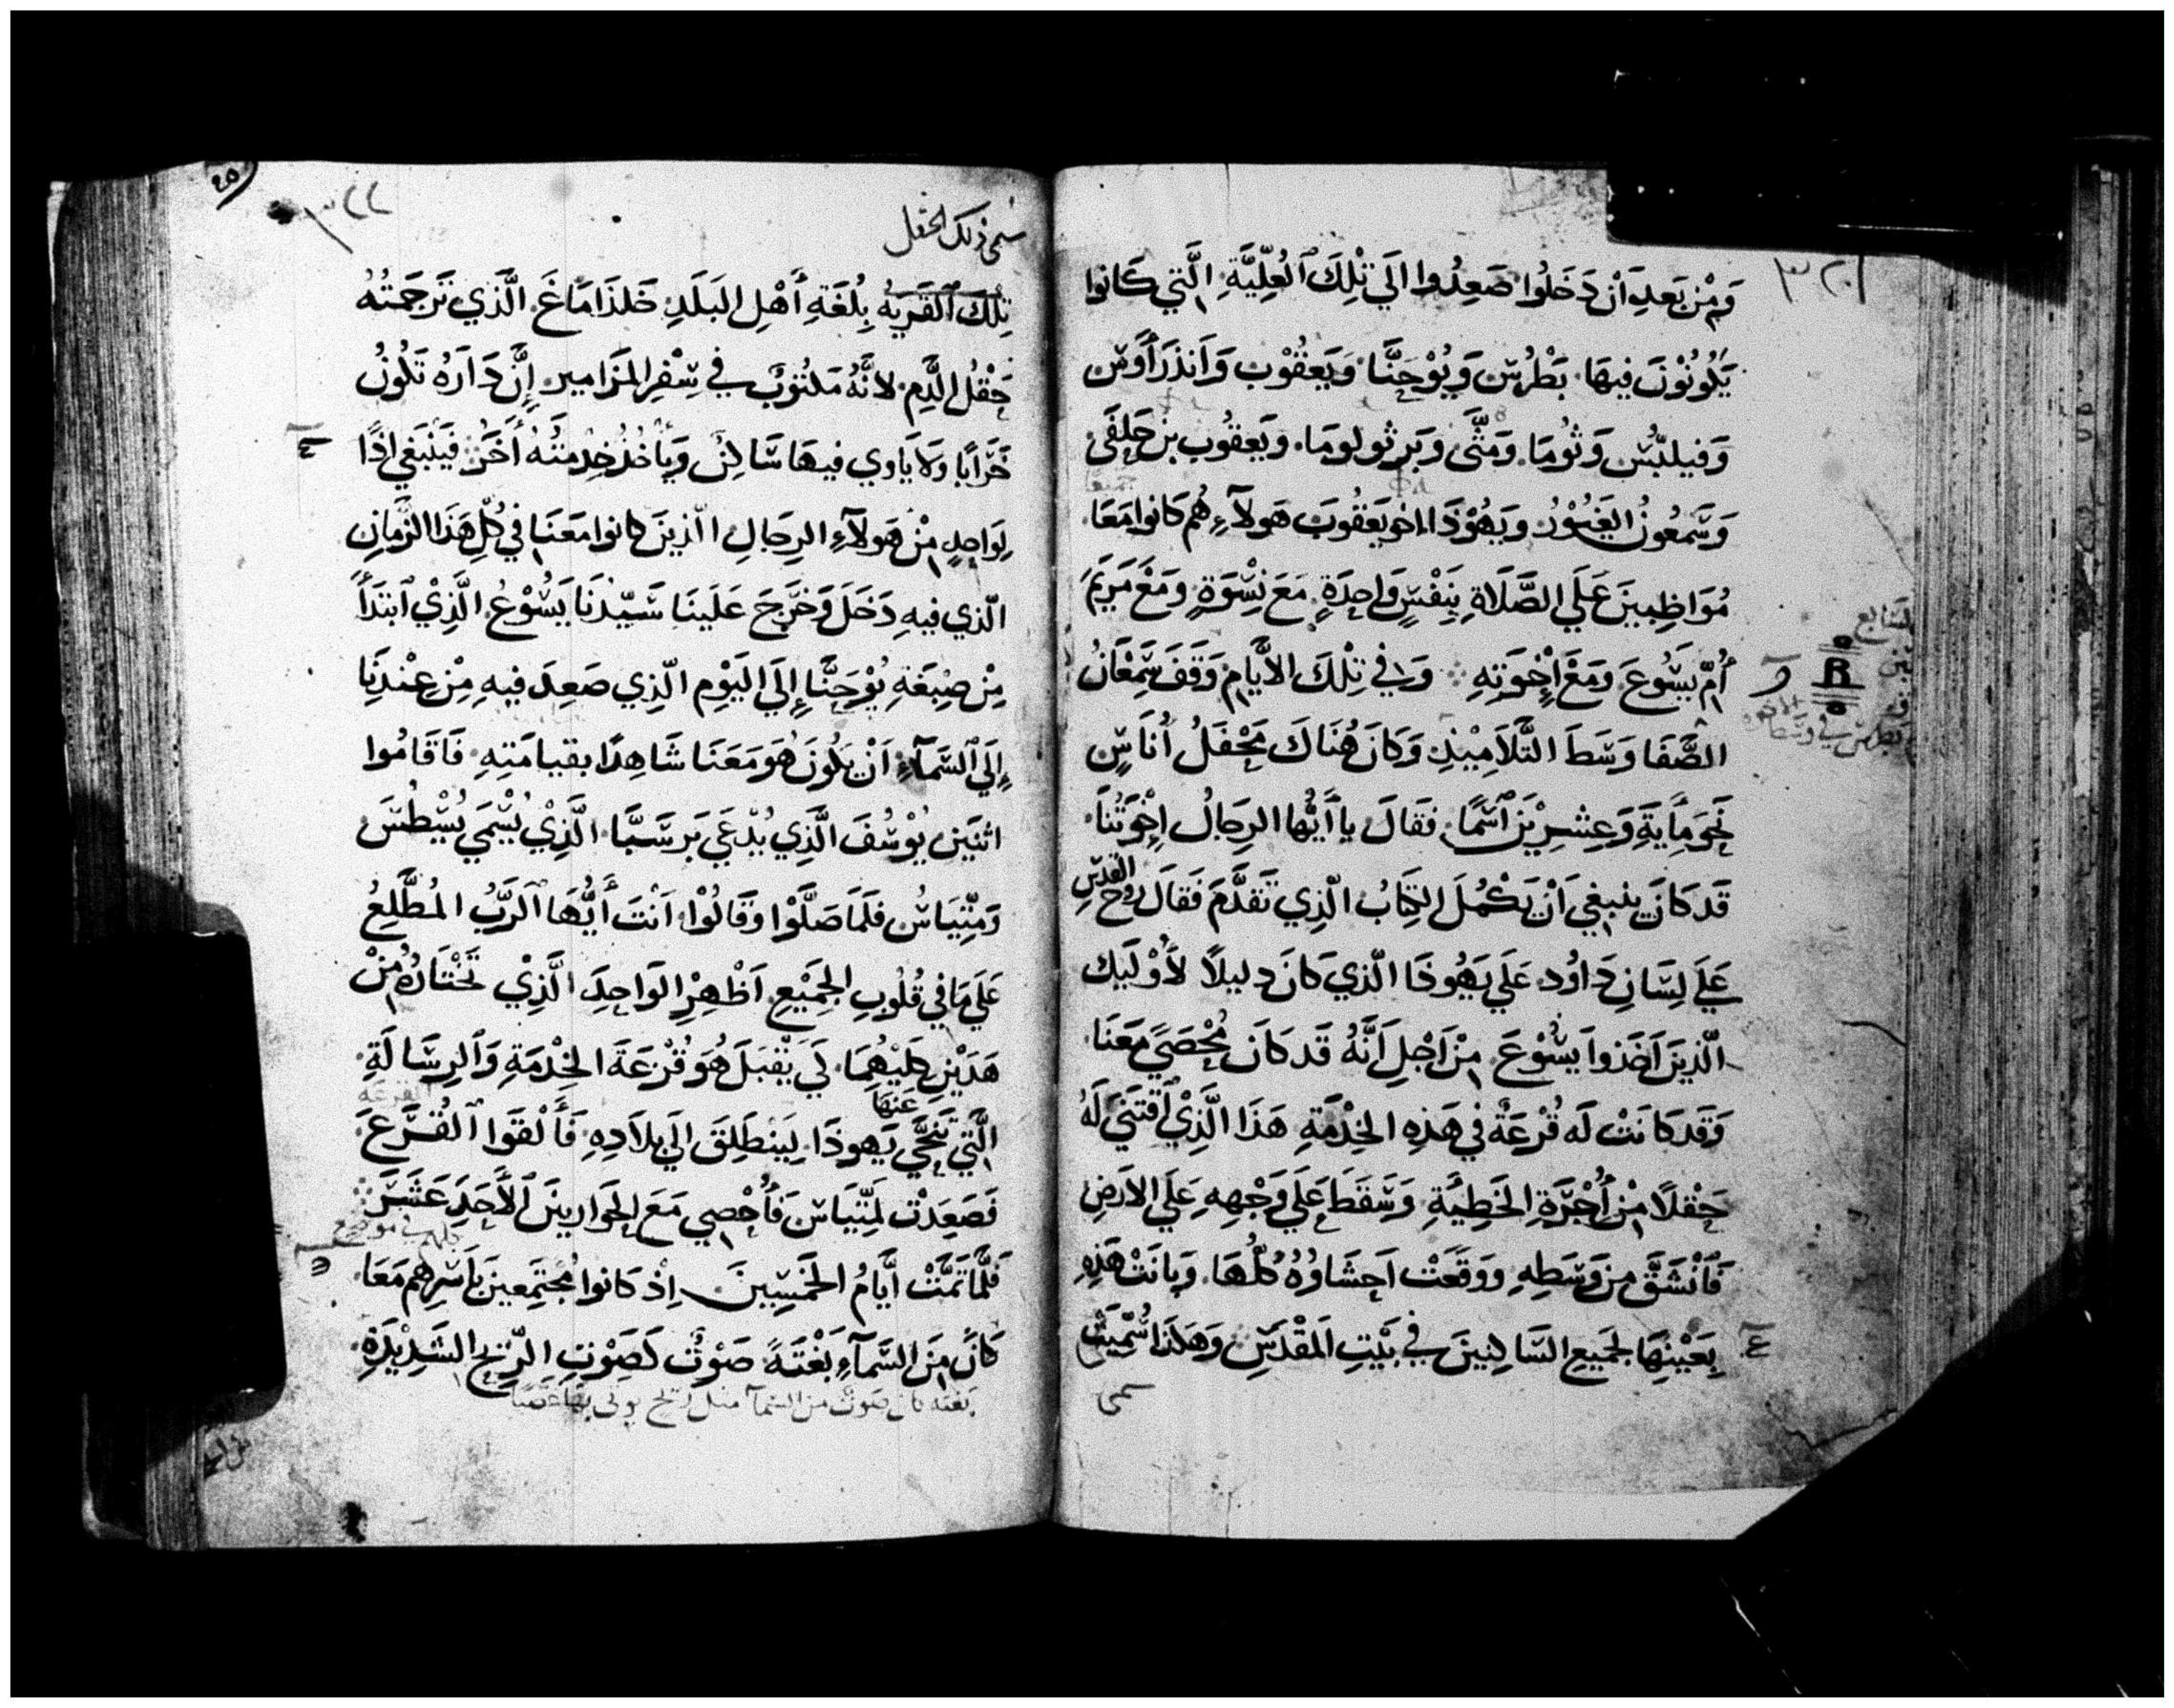 ٣٢١
وَمِنْ بَعدِ أَنْ دَخَلُوا صَعِدُوا الَي تْلِكَ ٱلعُلِّيَّةِ الَّتي كَانوا
يَكُونُوْنَ فيهَا. بَطْرُسْ وَيُوْحَنَّا وَيَعقُوْب وَاَنذَرَاَوسْ
وَفيلبّسْ وَثوُمَا. وَمَتَّى وَبَرثولومَا. وَيَعقوُب بن حَلفَى
وَسَّمعُونُ الغَيُوْرُ وَيَهُوْذَا اخو يَعَقُوبَ هَولآءِ هُم كَانوا مَعَا
مُوَاظِبينَ عَلَي الصَّلَاةِ بِنَفْسٍ وَاحِدَةٍ مَعَ نِسْوَةٍ وَمَعَ مَريَمَ
أُمِّ يَسُوعَ وَمَعَ اِخْوَتِهِ وَفي تِلْكَ الاَيَّامِ وَقَفَ شَمْعَانُ
الصَّفَا وَسَطَ التَّلَامِيْذِ وَكَانَ هُنَاكَ مَحْفَلُ أُنَاسٍ
نَحوَ مِأَيةٍ وَعِشرِيْنَ ٱسْمًا. فقَالَ يا أَيُّها الرِجَالُ اِخْوَتُنَا.
قَد كَانَ ينبغي اَنْ يَكْمُلَ الكِتَابُ الّذِي تَقدَّمَ فَقالَ رُوحُ القُدسِ
عَلَى لِسَانِ دَاوُد عَلَي يَهُوذَا الّذي كَانَ دليلًا لأُوْلَيِك
الّذينَ اَخَذوا يَسُوْعَ مِنْ اَجْلِ اَنَّهُ قَد كَانَ مُحْصًي مَعَنَا.
وَقَد كَانَتْ لَه قُرْعَةٌ في هَذِهِ الخِدْمَةِ هَذَا الَّذِيْ ٱقتَنَيَ لَهُ
حَقْلًا مِن أُجْرَةِ الخَطِيَّةِ وَسَّقَطَ عَلَي وَجْهِهِ عَلَي الاَرضِ
فَانْشَقَّ مِن وَسَطِهِ وَوَقَعَتْ اَحشَاوُهُ كُلُّهَا. وَبانَتْ هَذِهِ
بِعَيْنِهَا لِجَميعِ السَّاكِنِينَ في بَيْتِ اَلمَقْدَسِ وَهَكَذَا سُمّيَتْ
سمي
٣٢٢
سُمي ذلك الحقل
تِلْكَ ٱلقَريَهُ بِلُغَةِ أَهْلِ البَلَدِ حَلذَامَاغَ. الَّذي تَرجَمَتُهُ
حَقْلُ الدَّمِ. لانَّهُ مَكتُوبٌ في سِفْرِ المَزَامير إِنَّ دَارَهُ تَكُونُ
خَرَابًا وَلَا يَاوي فيهَا سَاكِنٌ وَيَأْخُذُ خِدْمَتَهُ أَخَرُ فَيَنْبَغي اِذًا
لِوَاحِدٍ مِنْ هَولَآءِ الرِجَالِ الّذينَ كانوا مَعَنَا في كُلِّ هَذَا الزَّمانِ
الّذي فيهِ دَخَلَ وَخَرَجَ عَلَينَا سَيِّدُنَا يَسُوْعُ. الَّذِيْ ٱبتَدَأَ
مِنْ صِبغَةِ يُوْحَنَّا إِلَي اليَوْمِ الّذِي صَعِدَ فيهِ مِنْ عِنْدِنَا
إِلَي ٱلسَّمَآءِ اَنْ يَكُونَ هُوَ مَعَنَا شَاهِدًا بقيامَتِهِ فَاَقَامُوا
اثنَين يُوْسُفَ الَّذِي يُدْعَي بَرسَبَّا. الَّذِيْ يُسْمَي يُسْطُسَ
وَمَتّيَاسْ فلَمّا صَلَّوْا وَقَالُوْا اَنْتَ أَيُّهَا ٱلرَّبُّ المُطَّلِعُ
عَلَي مَا في قُلُوبِ الجَمِيْعِ. اَظْهِرِ الوَاحِدَ الَّذِيْ تَخْتَارُهُ مِنْ
هَذَيْنِ كِلَيْهُمَا. لَي يَقْبَلَ هُوَ قُرْعَةَ الخِدْمَةِ وَٱلرِسَالَةِ.
الَّتي تَنَحَّي عَنهَا يَهوذَا. لِيَنطَلِقَ الَي بلاَدِهِ فَأَلْقَوا ٱلقُرَعَ
القرعَة
فَصَعِدَتْ لِمَتّيَاسَ فَأُحْصِي مَعَ الحَوَاريينَ ٱلأَحَدَ عَشَرَ
فَلَمَّا تَمَّتْ أَيَّامُ الخَمْسِيينَ اِذْ كَانوا مُجتَمِعينَ بِأَسرِهِم مَعَا
كَانَ مِنَ السَّمآءِ بَغْتَةً صَوْتٌ كَصَوْتِ الرِّيحِ الشَدِيْدَةِ
بَغتَة كان صَوتٌ من السّمآ